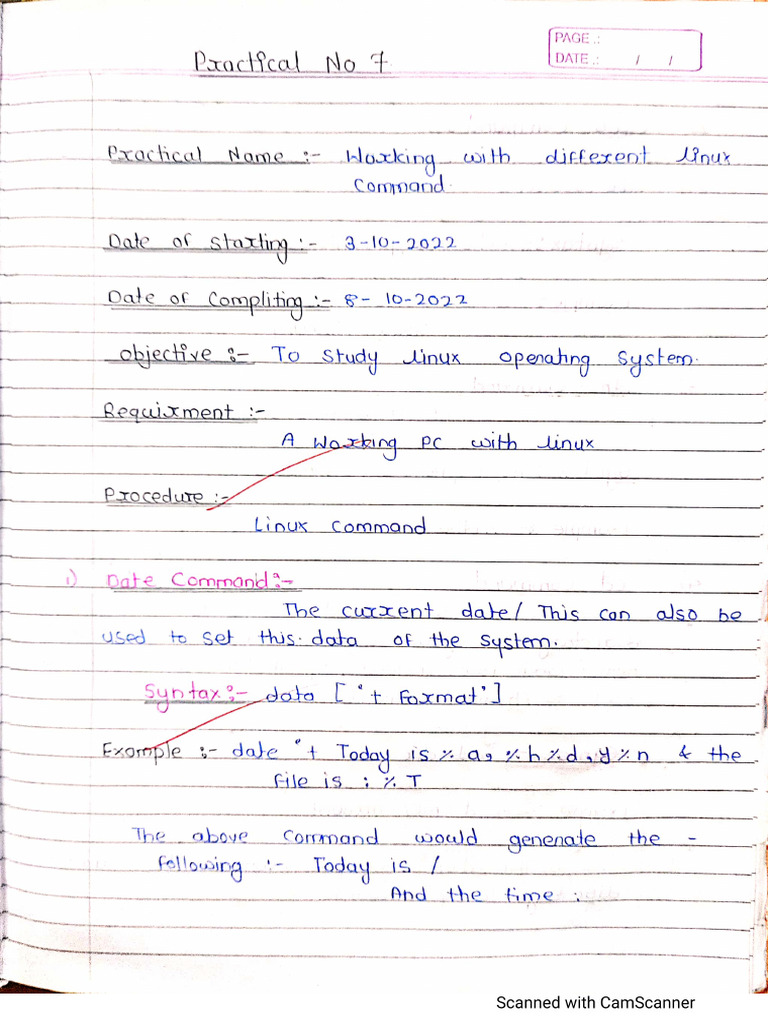 PAGE :
DATE : / /
Practical No 7
Practical Name :- Working with different linux
Command.
Date of starting :- 3-10-2022
Date of Compliting :- 8-10-2022
objective :- To study linux operating system.
Requirment :-
A Working PC with linux
Procedure :-
Linux command
i) Date Command :-
The current date / This can also be
used to set this data of the system.
Syntax :- data [ '+ Format' ]
Example :- date "+ Today is % a, % h % d, y % n & the
file is : % T
The above command would genenate the -
following :- Today is /
And the time :
Scanned with CamScanner